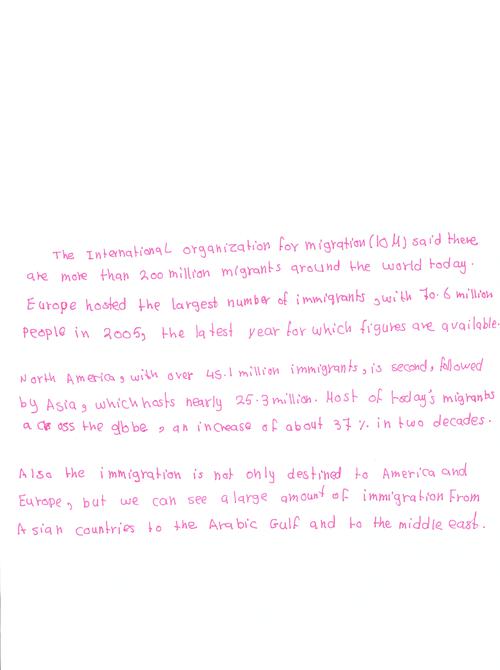 The International organization for migration (IOM) said there
are more than 200 million migrants around the world today.
Europe hosted the largest number of immigrants, with 70.6 million
people in 2005, the latest year for which figures are available.
North America, with over 45.1 million immigrants, is second, followed
by Asia, which hosts nearly 25.3 million. Most of today's migrants
a cross the globe, an increase of about 37 % in two decades.
Also the immigration is not only destined to America and
Europe, but we can see a large amount of immigration From
Asian countries to the Arabic Gulf and to the middle east.